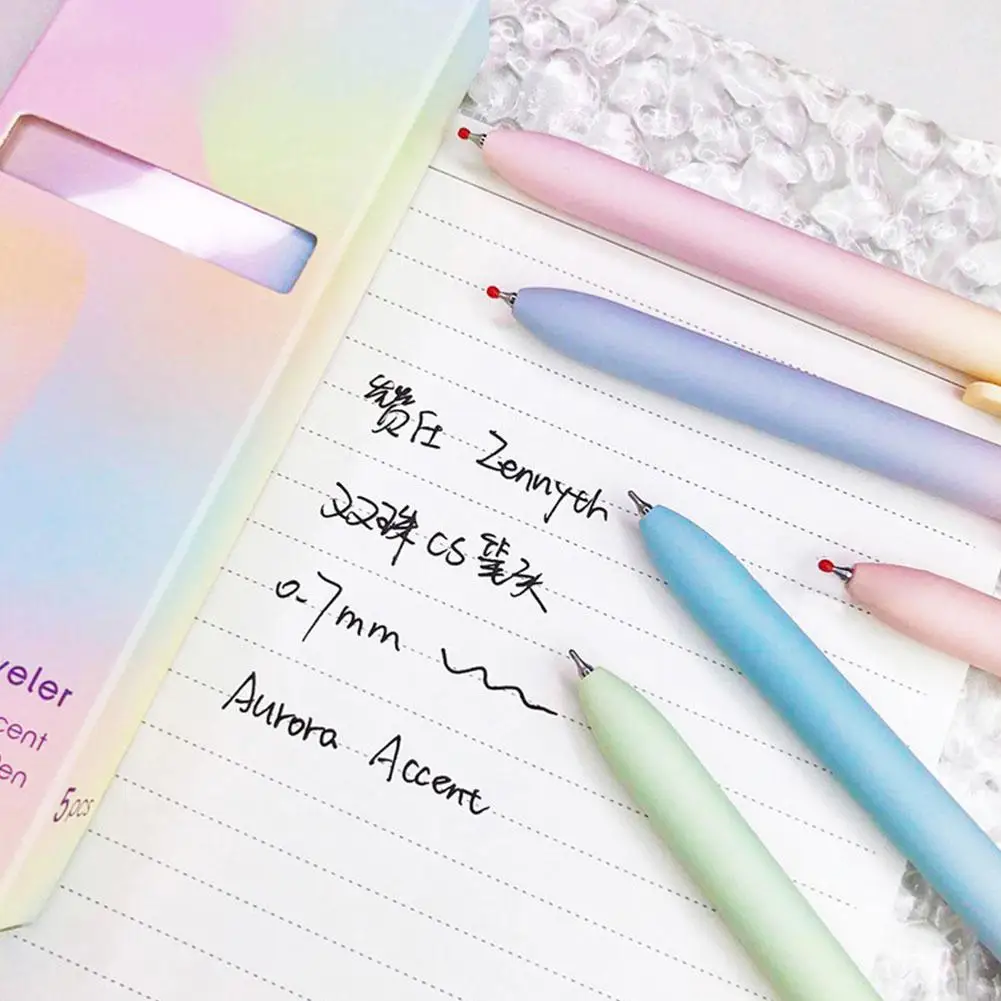 赞任 Zennyth
双珠 CS 笔头
0.7mm
Aurora Accent
veler
cent
Pen
5pcs